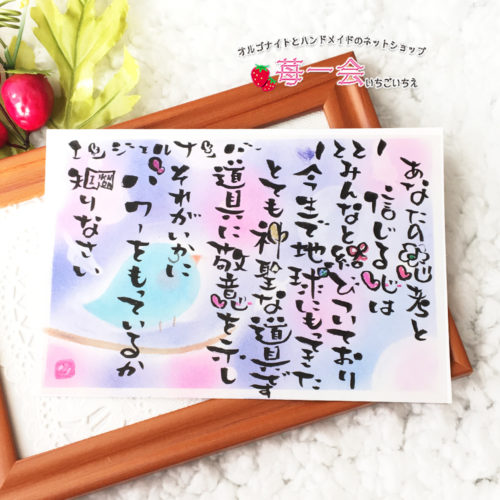 オルゴナイトとハンドメイドのネットショップ
苺一会 いちごいちえ
あなたの思考と
信じる心は
みんなと結びついており
今生で地球にもってきた
とても神聖な道具です
道具に敬意を示し
それがいかに
パワーをもっているか
知りなさい